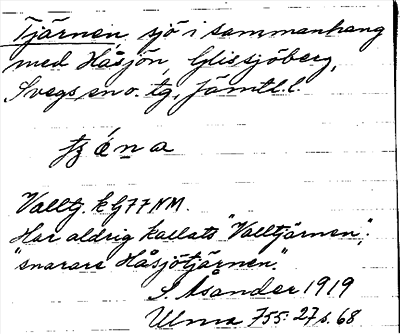 Tjärnen, sjö i sammanhang
med Håsjön, Glissjöberg,
Svegs sn o. tg, Jämtl. l.
Valltj. k G77 NM.
Har aldrig kallats "Valltjärnen",
"snarare Håsjötjärnen".
S. Arander 1919
Ulma 755:27 s. 68